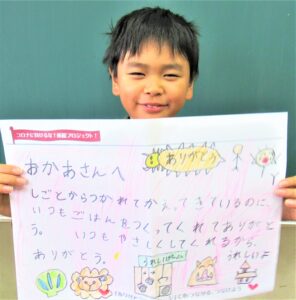 コロナに負けるな!感謝プロジェクト!
ありがとう
おかあさんへ
しごとからつかれてかえってきているのに、
いつもごはんをつくってくれてありがと
う。 いつもやさしくしてくれるから、
ありがとう。 うれしいよ